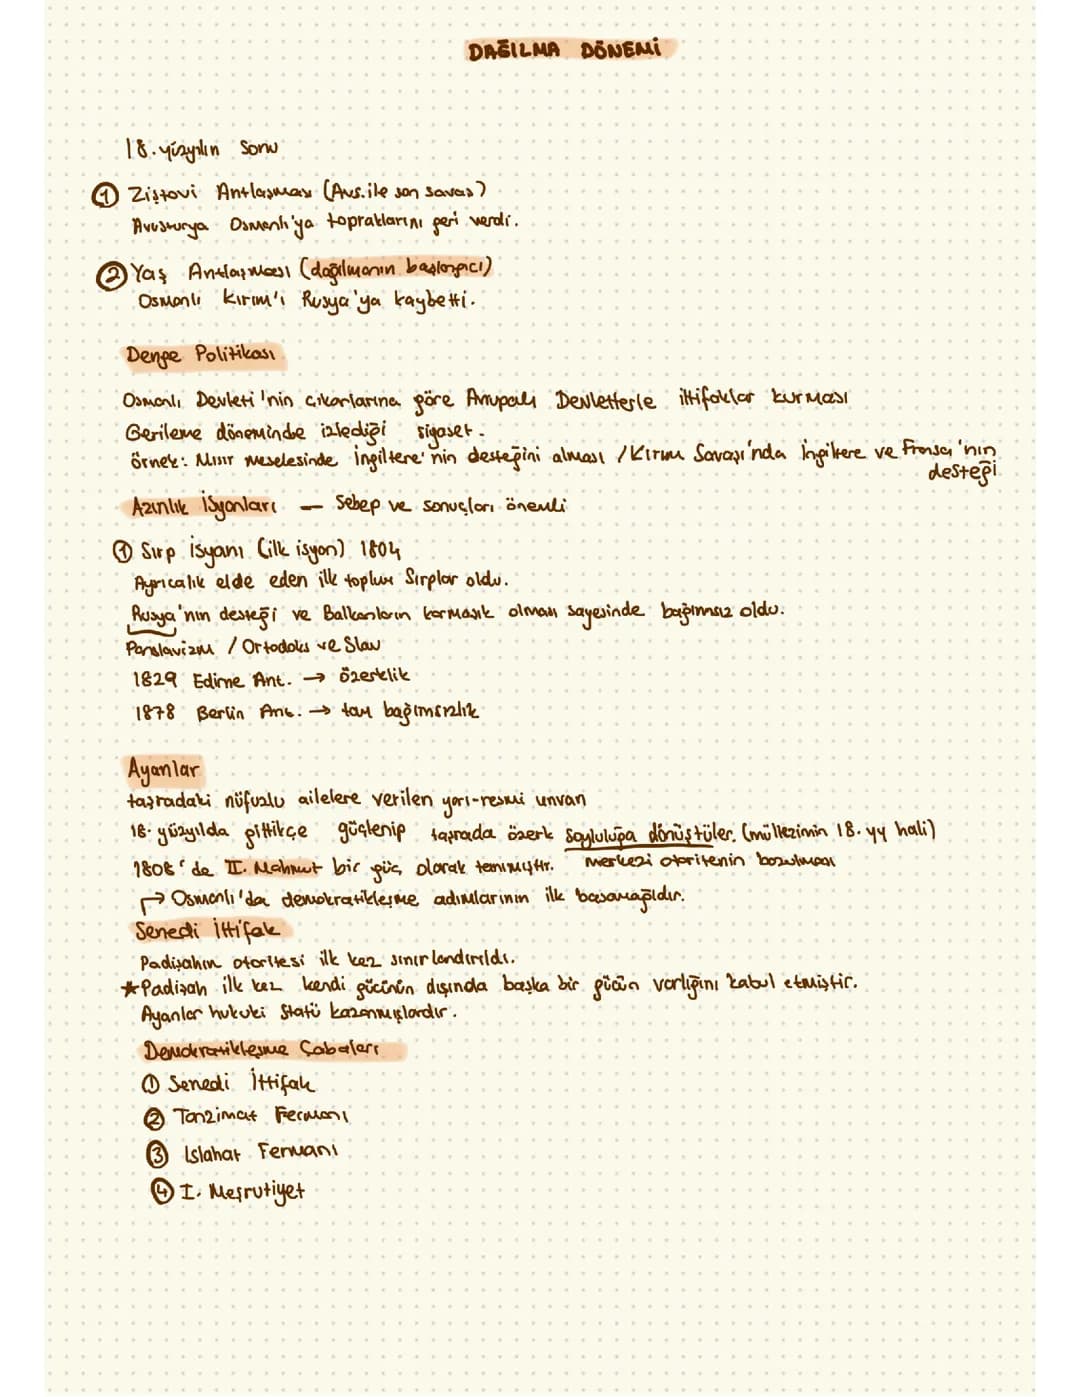 DAĞILMA DÖNEMİ
18.yüzyılın sonu
① Ziştovi Antlaşması (Avs.ile son savaş)
Avusturya Osmanlı'ya topraklarını geri verdi.
② Yaş Antlaşması (dağılmanın başlangıcı)
Osmanlı Kırım'ı Rusya'ya kaybetti.
Denge Politikası
Osmanlı Devleti'nin çıkarlarına göre Avrupalı Devletlerle ittifaklar kurması
Gerileme döneminde izlediği siyaset.
örnek: Mısır Meselesinde İngiltere'nin desteğini alması / Kırım Savaşı'nda İngiltere ve Fransa'nın
desteği
Azınlık İsyanları — Sebep ve sonuçları önemli
① Sırp isyanı (ilk isyan) 1804
Ayrıcalık elde eden ilk toplum Sırplar oldu.
Rusya'nın desteği ve Balkanların karmaşık olması sayesinde bağımsız oldu.
Panslavizm / Ortodoks ve Slav
1829 Edirne Ant. → özerklik
1878 Berlin Ant. → tam bağımsızlık
Ayanlar
taşradaki nüfuzlu ailelere verilen yarı-resmi unvan
18. yüzyılda gittikçe güçlenip taşrada özerk soyluluğa dönüştüler. (mültezimin 18. yy hali)
1808'de II. Mahmut bir güç olarak tanımıştır. merkezi otoritenin bozulması
↱ Osmanlı'da demokratikleşme adımlarının ilk basamağıdır.
Senedi İttifak
Padişahın otoritesi ilk kez sınırlandırıldı.
★Padişah ilk kez kendi gücünün dışında başka bir gücün varlığını kabul etmiştir.
Ayanlar hukuki statü kazanmışlardır.
Demokratikleşme Çabaları
① Senedi İttifak
② Tanzimat Fermanı
③ Islahat Fermanı
④ I. Meşrutiyet